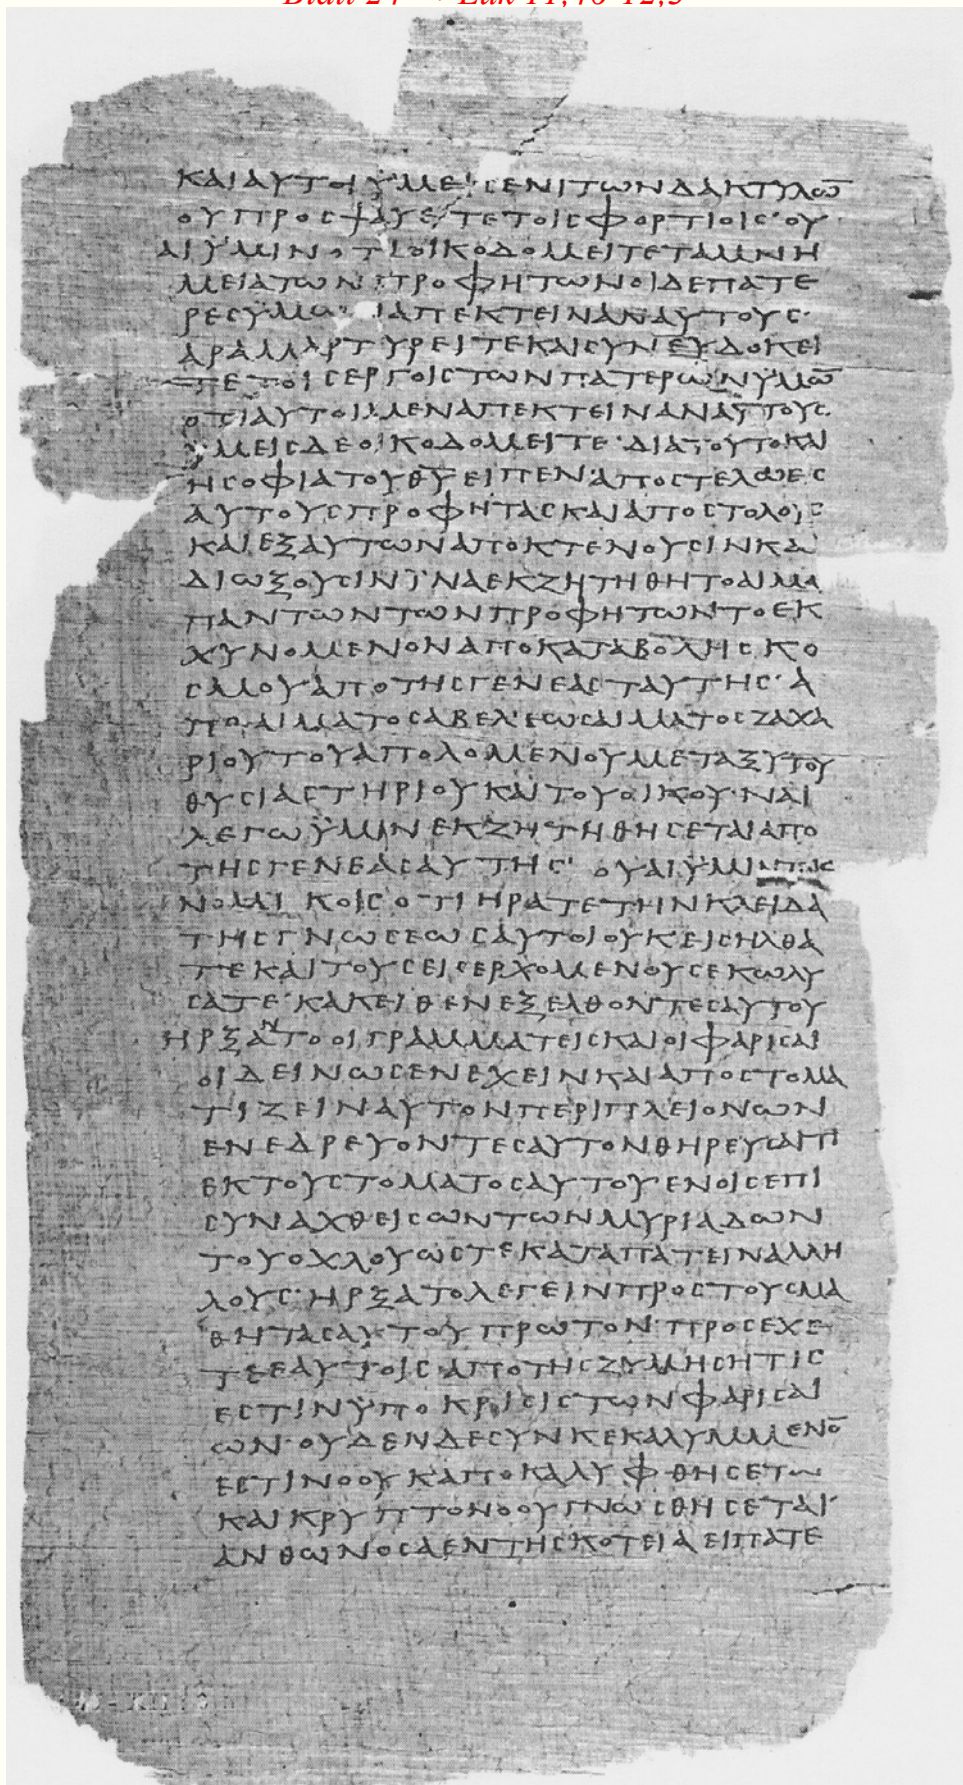 Blatt 24 → Luk 11,46-12,3
ΚΑΙ ΑΥΤΟΙ ΫΜΕΙϹ ΕΝΙ ΤΩΝ ΔΑΚΤΥΛΩ̅
ΟΥ ΠΡΟϹΨΑΥΕΤΕ ΤΟΙϹ ΦΟΡΤΙΟΙϹ· ΟΥ
ΑΙ ΫΜΙΝ ΟΤΙ ΟΙΚΟΔΟΜΕΙΤΕ ΤΑ ΜΝΗ
ΜΕΙΑ ΤΩΝ ΠΡΟΦΗΤΩΝ ΟΙ ΔΕ ΠΑΤΕ
ΡΕϹ ΫΜΩ ΑΠΕΚΤΕΙΝΑΝ ΑΥΤΟΥϹ·
ΑΡΑ ΜΑΡΤΥΡΕΙΤΕ ΚΑΙ ϹΥΝΕΥΔΟΚΕΙ
ΤΕ ΤΟΙϹ ΕΡΓΟΙϹ ΤΩΝ ΠΑΤΕΡΩΝ ΫΜΩ̅
ΟΤΙ ΑΥΤΟΙ ΜΕΝ ΑΠΕΚΤΕΙΝΑΝ ΑΥΤΟΥϹ
ΫΜΕΙϹ ΔΕ ΟΙΚΟΔΟΜΕΙΤΕ· ΔΙΑ ΤΟΥΤΟ ΚΑΙ
Η ϹΟΦΙΑ ΤΟΥ Θ̅Υ̅ ΕΙΠΕΝ· ΑΠΟϹΤΕΛΩ ΕΙϹ
ΑΥΤΟΥϹ ΠΡΟΦΗΤΑϹ ΚΑΙ ΑΠΟϹΤΟΛΟΥϹ
ΚΑΙ ΕΞ ΑΥΤΩΝ ΑΠΟΚΤΕΝΟΥϹΙΝ ΚΑΙ
ΔΙΩΞΟΥϹΙΝ ΪΝΑ ΕΚΖΗΤΗΘΗ ΤΟ ΑΙΜΑ
ΠΑΝΤΩΝ ΤΩΝ ΠΡΟΦΗΤΩΝ ΤΟ ΕΚ
ΧΥΝΟΜΕΝΟΝ ΑΠΟ ΚΑΤΑΒΟΛΗϹ ΚΟ
ϹΜΟΥ ΑΠΟ ΤΗϹ ΓΕΝΕΑϹ ΤΑΥΤΗϹ· Α
ΠΟ ΑΙΜΑΤΟϹ ΑΒΕΛ· ΕΩϹ ΑΙΜΑΤΟϹ ΖΑΧΑ
ΡΙΟΥ ΤΟΥ ΑΠΟΛΟΜΕΝΟΥ ΜΕΤΑΞΥ ΤΟΥ
ΘΥϹΙΑϹΤΗΡΙΟΥ ΚΑΙ ΤΟΥ ΟΙΚΟΥ· ΝΑΙ
ΛΕΓΩ ΫΜΙΝ ΕΚΖΗΤΗΘΗϹΕΤΑΙ ΑΠΟ
ΤΗϹ ΓΕΝΕΑϹ ΑΥΤΗϹ· ΟΥΑΙ ΫΜΙΝ ΤΟΙϹ
ΝΟΜΙΚΟΙϹ ΟΤΙ ΗΡΑΤΕ ΤΗΝ ΚΛΕΙΔΑ
ΤΗϹ ΓΝΩϹΕΩϹ ΑΥΤΟΙ ΟΥΚ ΕΙϹΗΛΘΑ
ΤΕ ΚΑΙ ΤΟΥϹ ΕΙϹΕΡΧΟΜΕΝΟΥϹ ΕΚΩΛΥ
ϹΑΤΕ· ΚΑΚΕΙΘΕΝ ΕΞΕΛΘΟΝΤΕϹ ΑΥΤΟΥ
ΗΡΞΑΝΤΟ ΟΙ ΓΡΑΜΜΑΤΕΙϹ ΚΑΙ ΟΙ ΦΑΡΙϹΑΙ
ΟΙ ΔΕΙΝΩϹ ΕΝΕΧΕΙΝ ΚΑΙ ΑΠΟϹΤΟΜΑ
ΤΙΖΕΙΝ ΑΥΤΟΝ ΠΕΡΙ ΠΛΕΙΟΝΩΝ
ΕΝΕΔΡΕΥΟΝΤΕϹ ΑΥΤΟΝ ΘΗΡΕΥϹΑΙ ΤΙ
ΕΚ ΤΟΥ ϹΤΟΜΑΤΟϹ ΑΥΤΟΥ· ΕΝ ΟΙϹ ΕΠΙ
ϹΥΝΑΧΘΕΙϹΩΝ ΤΩΝ ΜΥΡΙΑΔΩΝ
ΤΟΥ ΟΧΛΟΥ ΩϹΤΕ ΚΑΤΑΠΑΤΕΙΝ ΑΛΛΗ
ΛΟΥϹ· ΗΡΞΑΤΟ ΛΕΓΕΙΝ ΠΡΟϹ ΤΟΥϹ ΜΑ
ΘΗΤΑϹ ΑΥΤΟΥ ΠΡΩΤΟΝ· ΠΡΟϹΕΧΕ
ΤΕ ΕΑΥΤΟΙϹ ΑΠΟ ΤΗϹ ΖΥΜΗϹ ΗΤΙϹ
ΕϹΤΙΝ ΫΠΟΚΡΙϹΙϹ ΤΩΝ ΦΑΡΙϹΑΙ
ΩΝ· ΟΥΔΕΝ ΔΕ ϹΥΝΚΕΚΑΛΥΜΜΕΝΟ̅
ΕϹΤΙΝ Ο ΟΥΚ ΑΠΟΚΑΛΥΦΘΗϹΕΤΑΙ
ΚΑΙ ΚΡΥΠΤΟΝ Ο ΟΥ ΓΝΩϹΘΗϹΕΤΑΙ·
ΑΝΘ ΩΝ ΟϹΑ ΕΝ ΤΗ ϹΚΟΤΕΙΑ ΕΙΠΑΤΕ